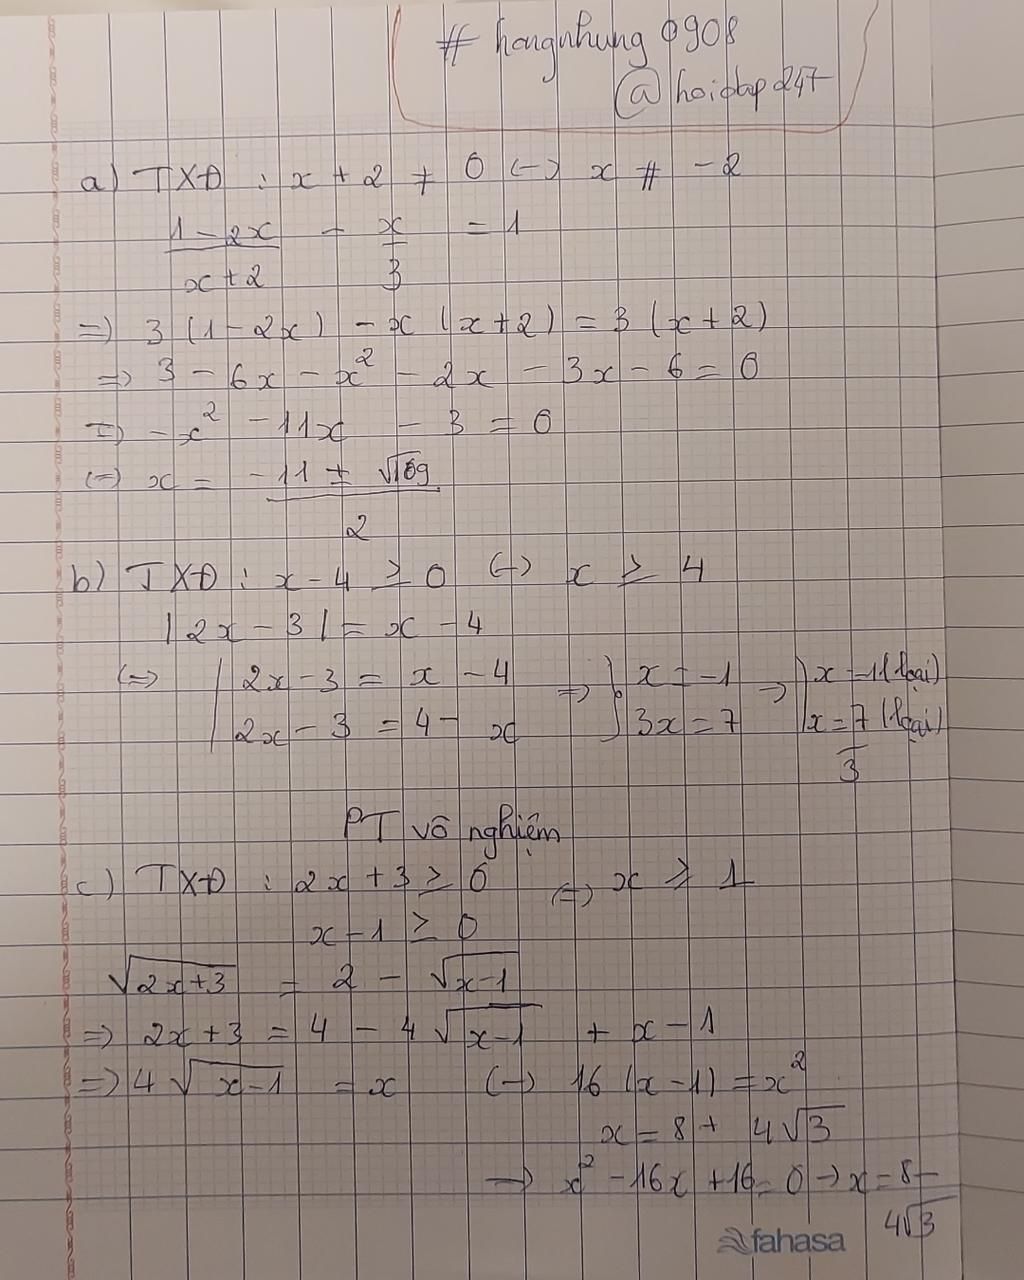 # hongnhung0908
@hoidap247
a) TXĐ : x + 2 ≠ 0 (-) x # -2
(1 - 2x)/(x + 2) - x/3 = 1
=) 3 (1 - 2x) - x (x + 2) = 3 (x + 2)
=> 3 - 6x - x² - 2x - 3x - 6 = 0
=) -x² - 11x - 3 = 0
(=) x = (-11 ± √109)/2
b) TXĐ : x - 4 ≥ 0 (-) x ≥ 4
|2x - 3| = x - 4
(=> | 2x - 3 = x - 4 => } x = -1 -> } x = -1 (loại)
| 2x - 3 = 4 - x 3x = 7 x = 7/3 (loại)
PT vô nghiệm
c) TXĐ : 2x + 3 ≥ 0 (=) x ≥ 1
x - 1 ≥ 0
√2x+3 = 2 - √x-1
=) 2x + 3 = 4 - 4√x-1 + x - 1
=) 4√x-1 = x (-) 16 (x - 1) = x²
x = 8 + 4√3
-> x² - 16x + 16 = 0 -> x = 8 -
4√3
fahasa